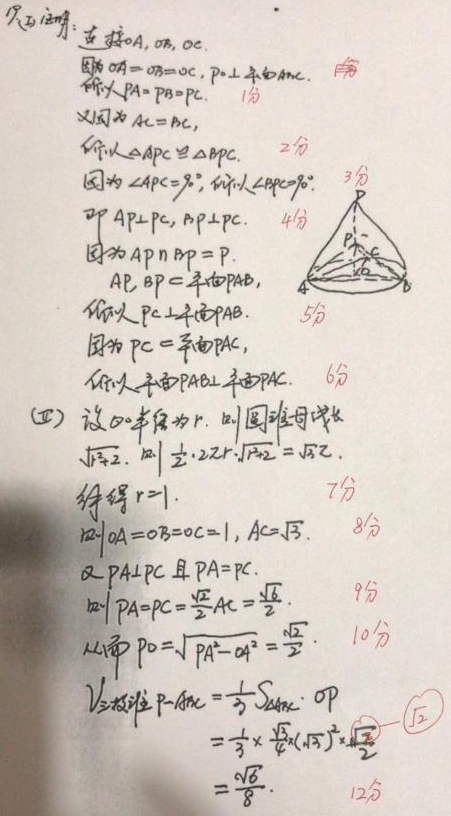 (I)证明:
连接OA, OB, OC.
因为OA=OB=OC, PO⊥平面ABC.
所以PA=PB=PC. 1分
又因为AC=BC,
所以△APC≌△BPC. 2分
因为∠APC=90°, 所以∠BPC=90°. 3分
即AP⊥PC, BP⊥PC. 4分
因为AP∩BP=P.
AP, BP⊂平面PAB,
所以PC⊥平面PAB. 5分
因为PC⊂平面PAC,
所以平面PAB⊥平面PAC. 6分
D
P
C
A
O
B
(Ⅱ) 设⊙O半径为r. 则圆锥母线长
√r²+2. 则 1/2·2πr·√r²+2 = √3π.
解得r=1. 7分
则OA=OB=OC=1, AC=√3. 8分
又PA⊥PC且PA=PC.
则PA=PC=√2/2 AC=√6/2. 9分
从而PO=√PA²-OA²=√2/2. 10分
V三棱锥P-ABC=1/3 S△ABC·OP
=1/3×√3/4×(√3)²×√2/2 √2
=√6/8. 12分